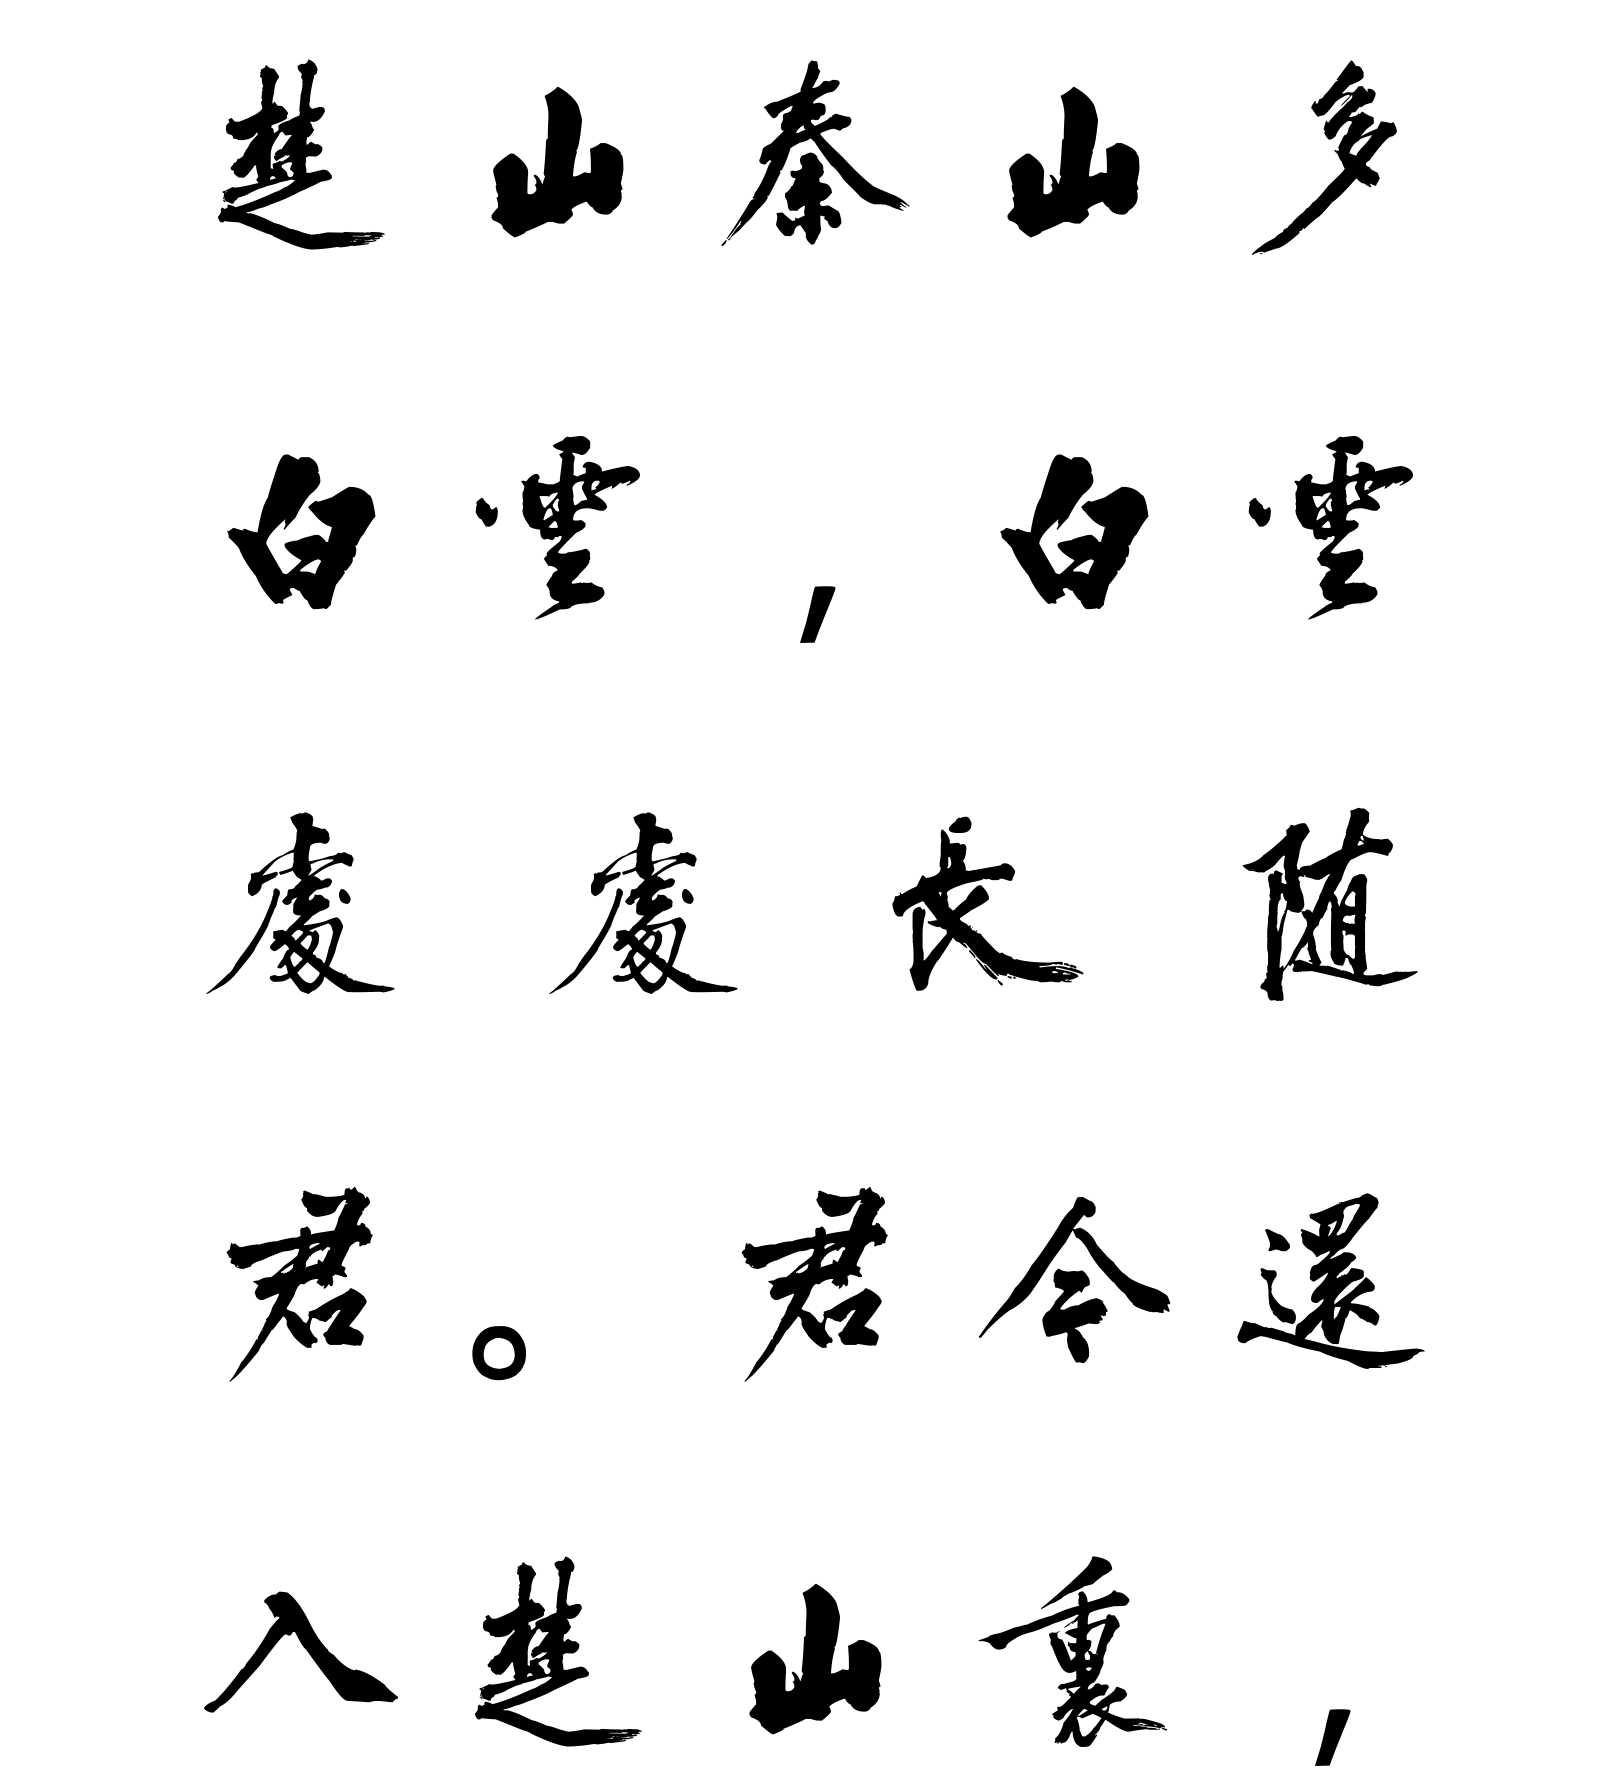 楚山秦山多
白雲，白雲
處處長随
君。君今還
入楚山裏，